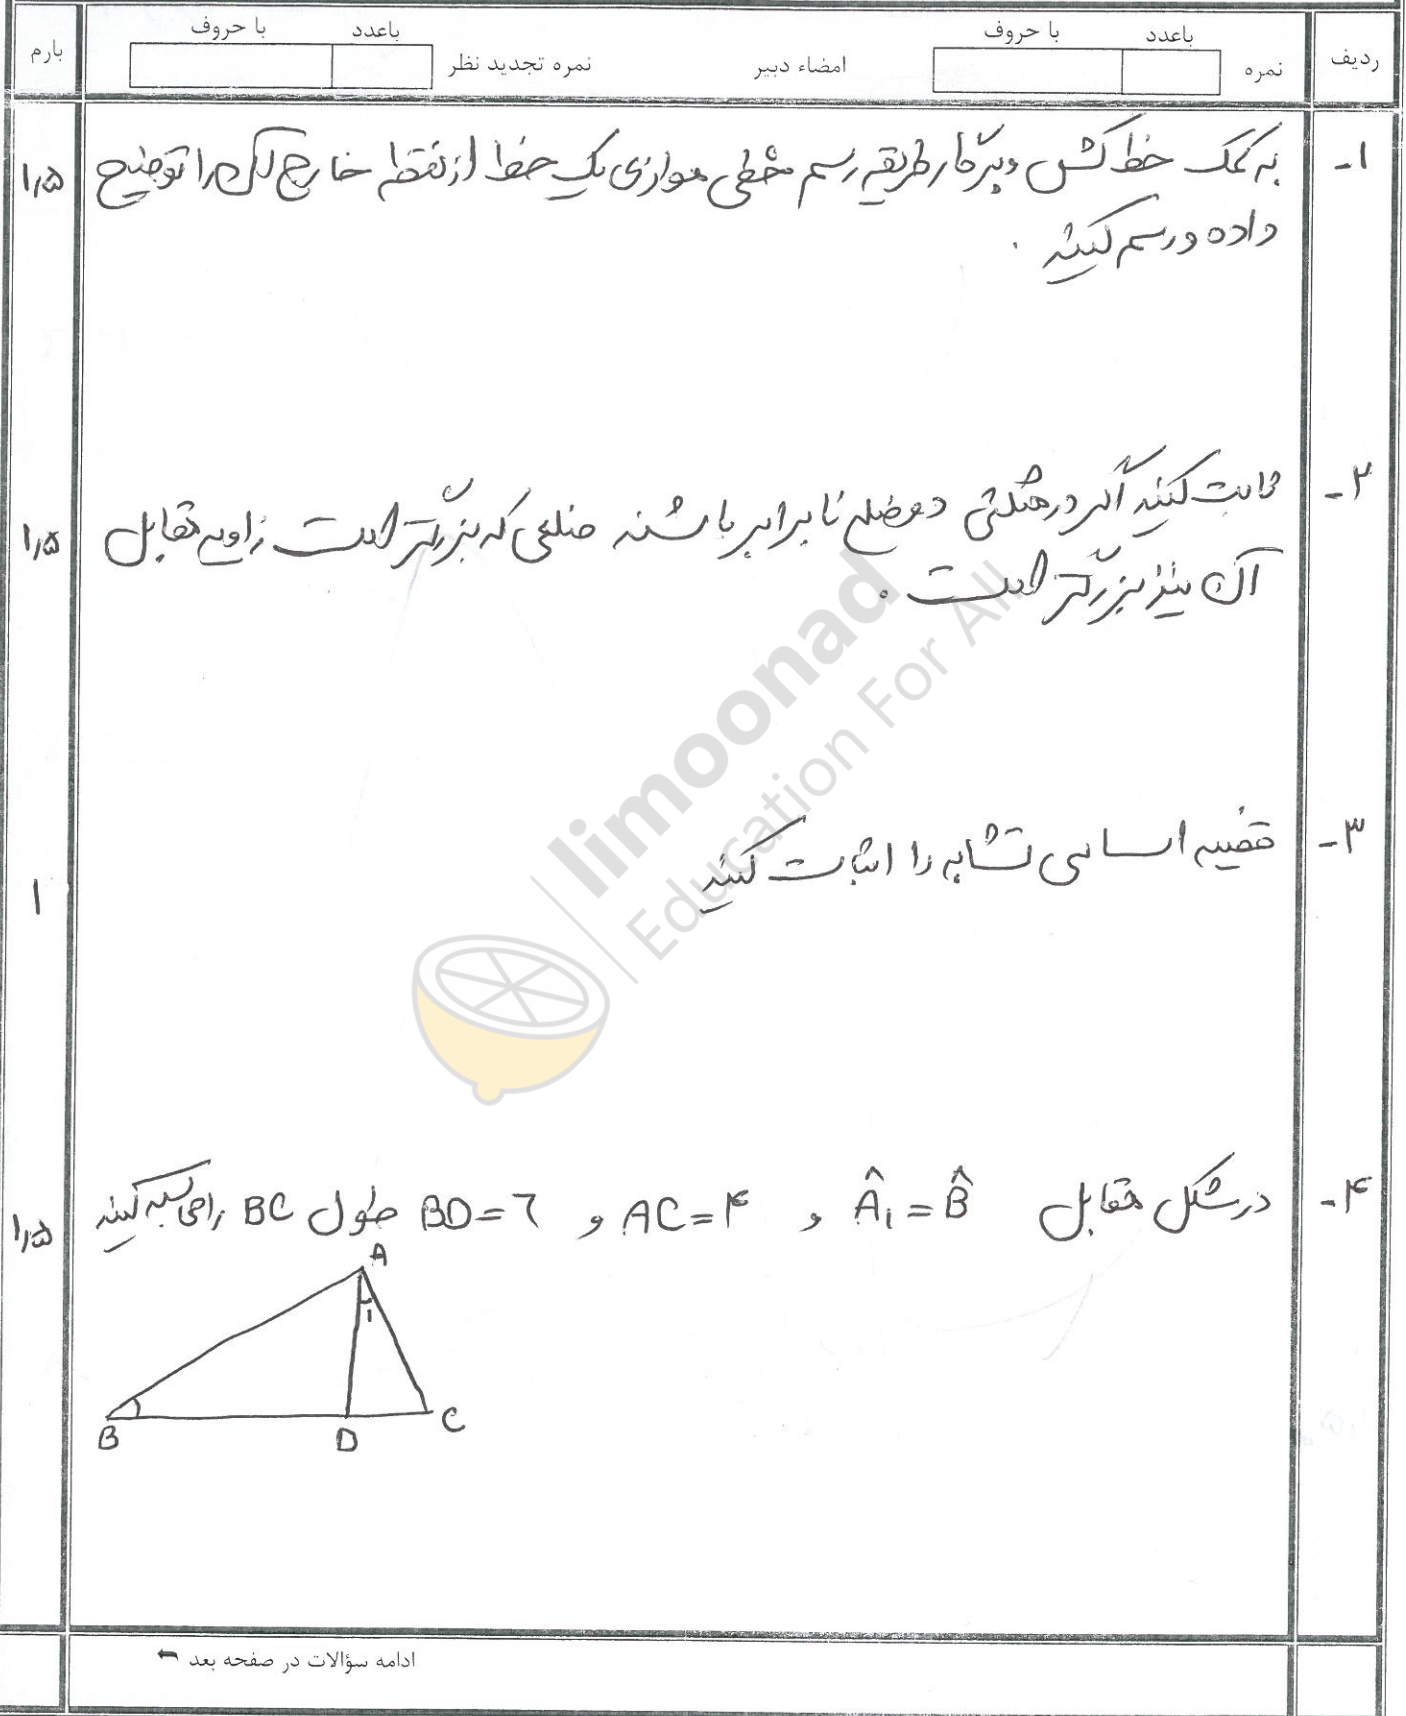 ردیف
نمره
باعدد
با حروف
امضاء دبیر
نمره تجدید نظر
باعدد
با حروف
بارم
۱- به کمک خط کش و پرگار طریقه رسم خطی موازی یک خط از نقطه خارج آن را توضیح ۱٫۵
داده و رسم کنید .
۲- ثابت کنید اگر در مثلثی دو ضلع نابرابر باشند ضلعی که بزرگتر است زاویه مقابل ۱٫۵
آن نیز بزرگتر است .
۳- قضیه اساسی تشابه را اثبات کنید ۱
۴- در شکل مقابل Â₁ = B̂ و AC = ۴ و BD = ٦ طول BC را محاسبه کنید ۱٫۵
A
1
B
D
C
limoonad
Education For All
ادامه سؤالات در صفحه بعد